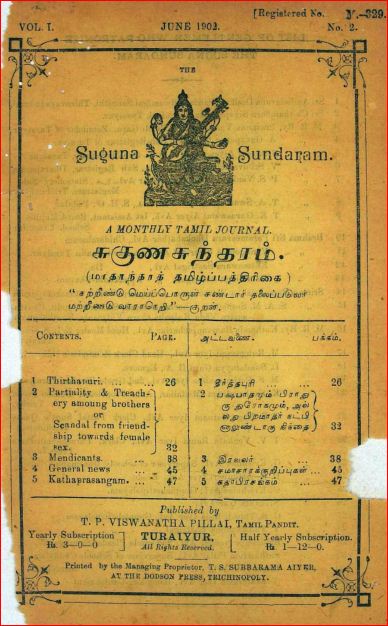 [Registered No. N.-329.
VOL. I. JUNE 1902. No. 2.
THE
Suguna Sundaram.
A MONTHLY TAMIL JOURNAL.
சுகுணசுந்தரம்.
(மாதாந்தரத் தமிழ்ப்பத்திரிகை)
"கற்றீண்டு மெய்ப்பொருள் கண்டார் தலைப்படுவர்
மற்றீண்டு வாராநெறி"—குறள்.
CONTENTS. PAGE.
1 Thirthapuri. ... ... 26
2 Partiality & Treach-
ery amoung brothers
or
Scandal from friend-
ship towards female
sex. 32
3 Mendicants. ... 38
4 General news ... 45
5 Kathaprasangam. ... 47
அட்டவணை. பக்கம்.
1 தீர்த்தபுரி ... ... 26
2 பக்ஷபாதமும் பிராது
ரு துரோகமும், அல்
லது பிறமாதர் நட்பி
னாலுண்டாகு நிந்தை 32
3 இரவலர் ... 38
4 சமாசாரக்குறிப்புகள் ... 45
5 கதாபிரசங்கம் ... 47
Published by
T. P. VISWANATHA PILLAI, TAMIL PANDIT.
Yearly Subscription
Rs. 3—0—0
TURAIYUR,
All Rights Reserved.
Half Yearly Subscription.
Rs. 1—12—0.
Printed by the Managing Proprietor, T. S. SUBBARAMA AIYER,
AT THE DODSON PRESS, TRICHINOPOLY.